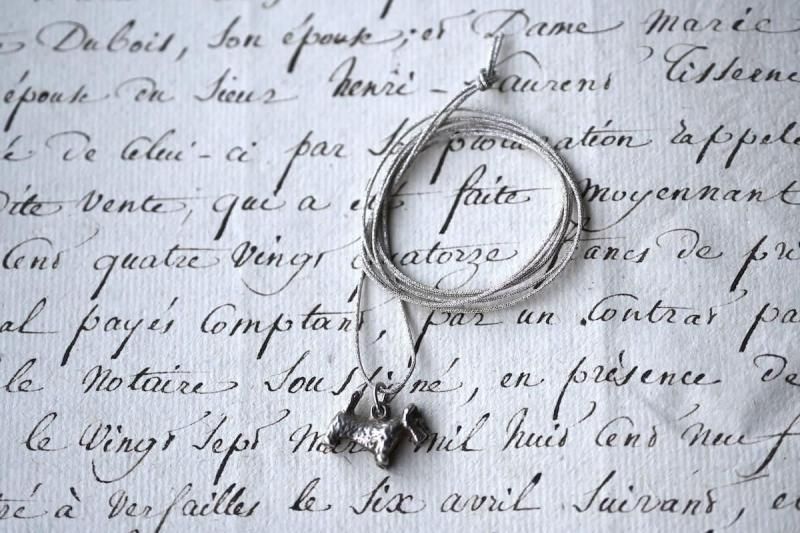 Dubois, son épouse; et Dame Marie
épouse du Sieur henri - Laurent Tisseran
é de Celui-ci par sa procuration rappelé
dite vente, qui a été faite moyennant
Cent quatre Vingt quatorze francs de pri
al payés Comptant, par un Contrat pa
le Notaire Soussigné, en présence de
le Vingt Sept Mars mil huit Cent neuf
tré à Versailles le Six avril Suivant, e